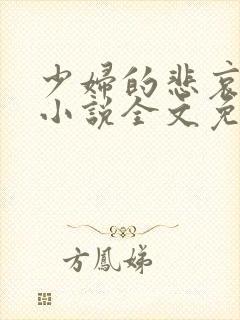 少婦的悲哀
小說全文免
方鳳娣